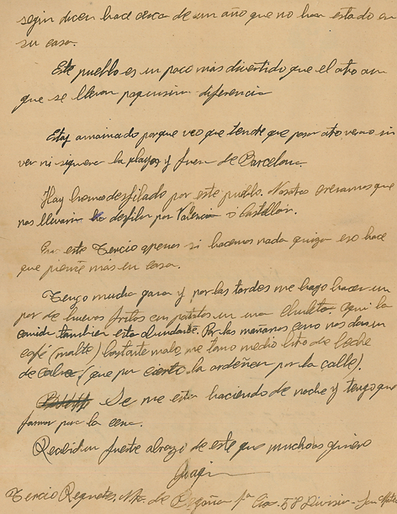 según dicen hace cerca de un año que no han estado en
su casa.
Este pueblo es un poco más divertido que el otro aun
que se llevan poquisima diferencia
Estoy amainado porque veo que tendre que pasar otro verano sin
ver ni siquiera la playa y fuera de Barcelona.
Hoy hemos desfilado por este pueblo. Nosotros creiamos que
nos llevarian a desfilar por Valencia o Castellón.
En este Tercio apenas si hacemos nada quizas eso hace
que piense mas en casa.
Tengo mucha gana y por las tardes me hago hacer un
par de huevos fritos con patatas en una Chuleta. Aqui la
comida tambien esta abundante. Por las mañanas como nos dan un
cafe (malito) bastante malo, me tomo medio litro de leche
de cabra (que por cierto la ordeñan por la calle).
Se me esta haciendo de noche y tengo que
para la cena.
Recibid un fuerte abrazo de este que mucho os quiere
Tercio Requetes, Ntra. de Begoña 1ª Cia. 58 División